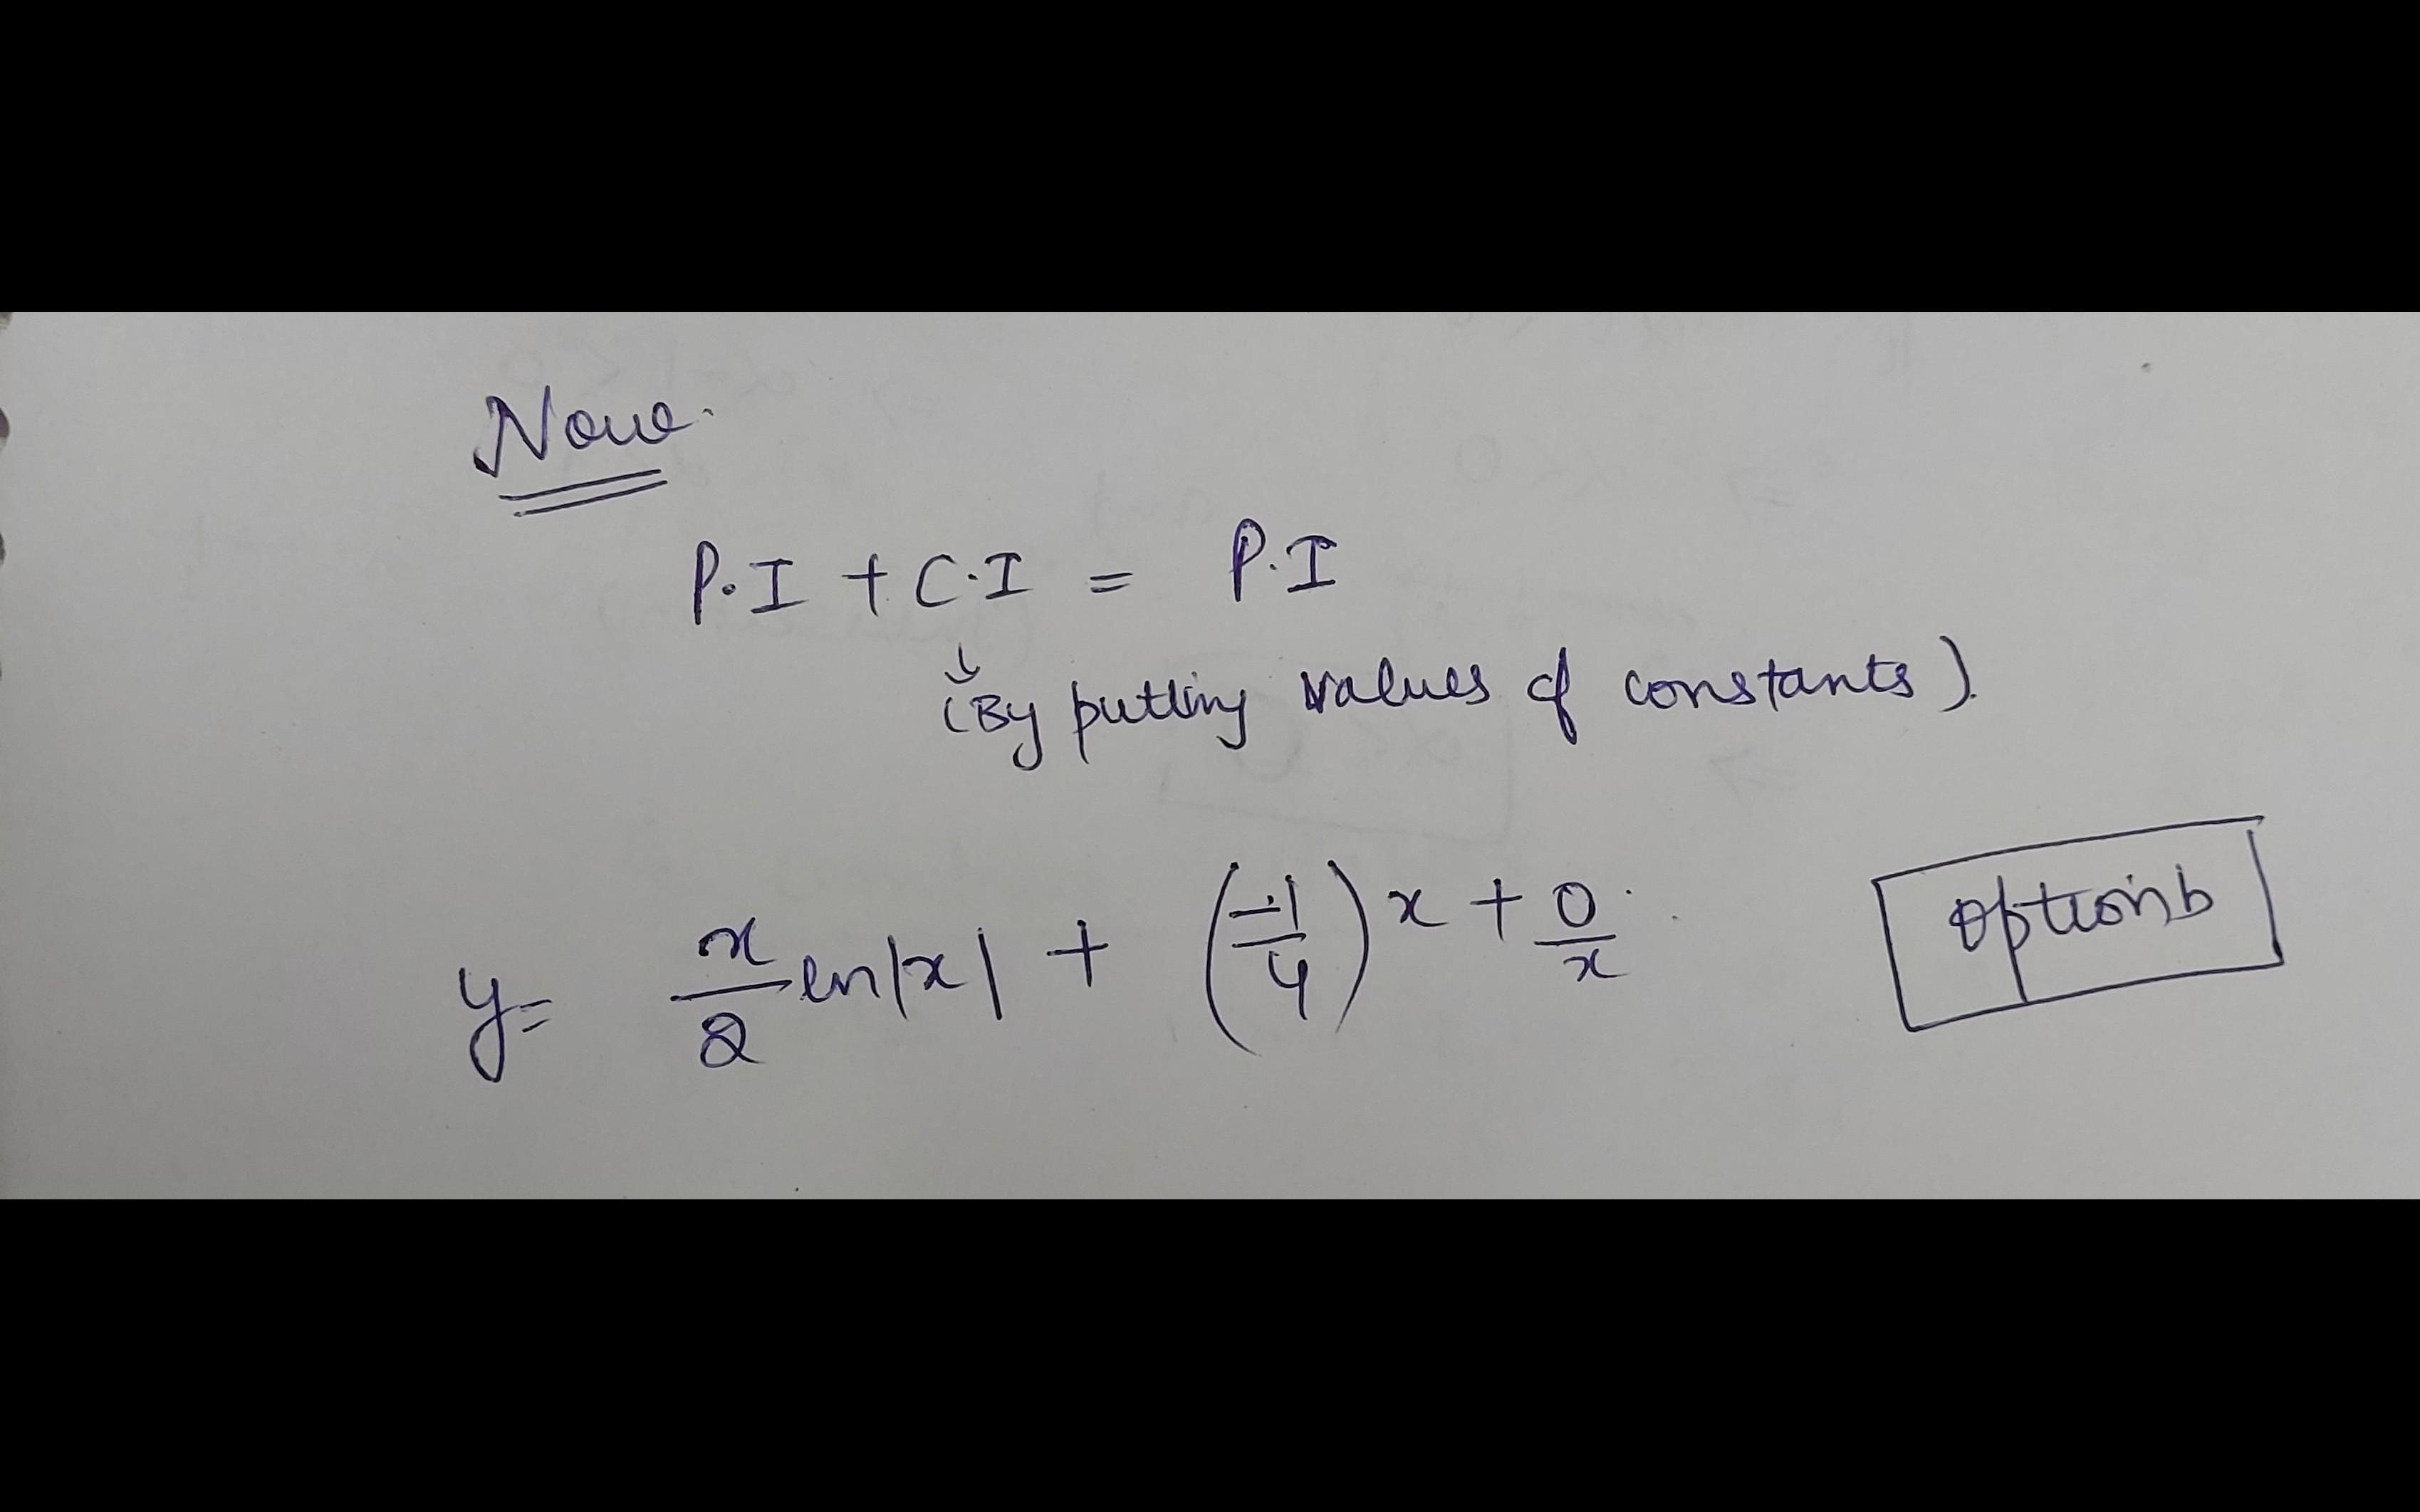 Now.
P.I + C.I = P.I
↓
(By putting values of constants).
y = x/2 ln|x| + (-1/4) x + 0/x.
option b